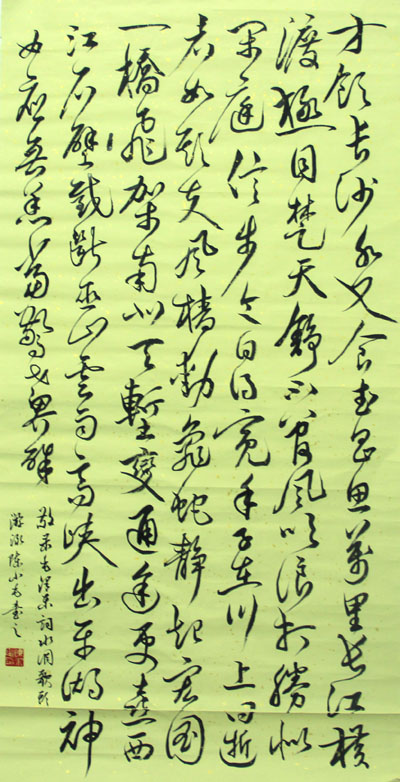 才飲长沙水又食武昌鱼萬里长江横
渡極目楚天舒不管风吹浪打勝似
闲庭信步今日得宽余子在川上曰逝
者如斯夫风樯動龜蛇静起宏图
一橋飛架南北天塹變通途更立西
江石壁截断巫山云雨高峡出平湖神
女应無恙当惊世界殊
敬录毛泽东词水调歌头
游泳陈小书之